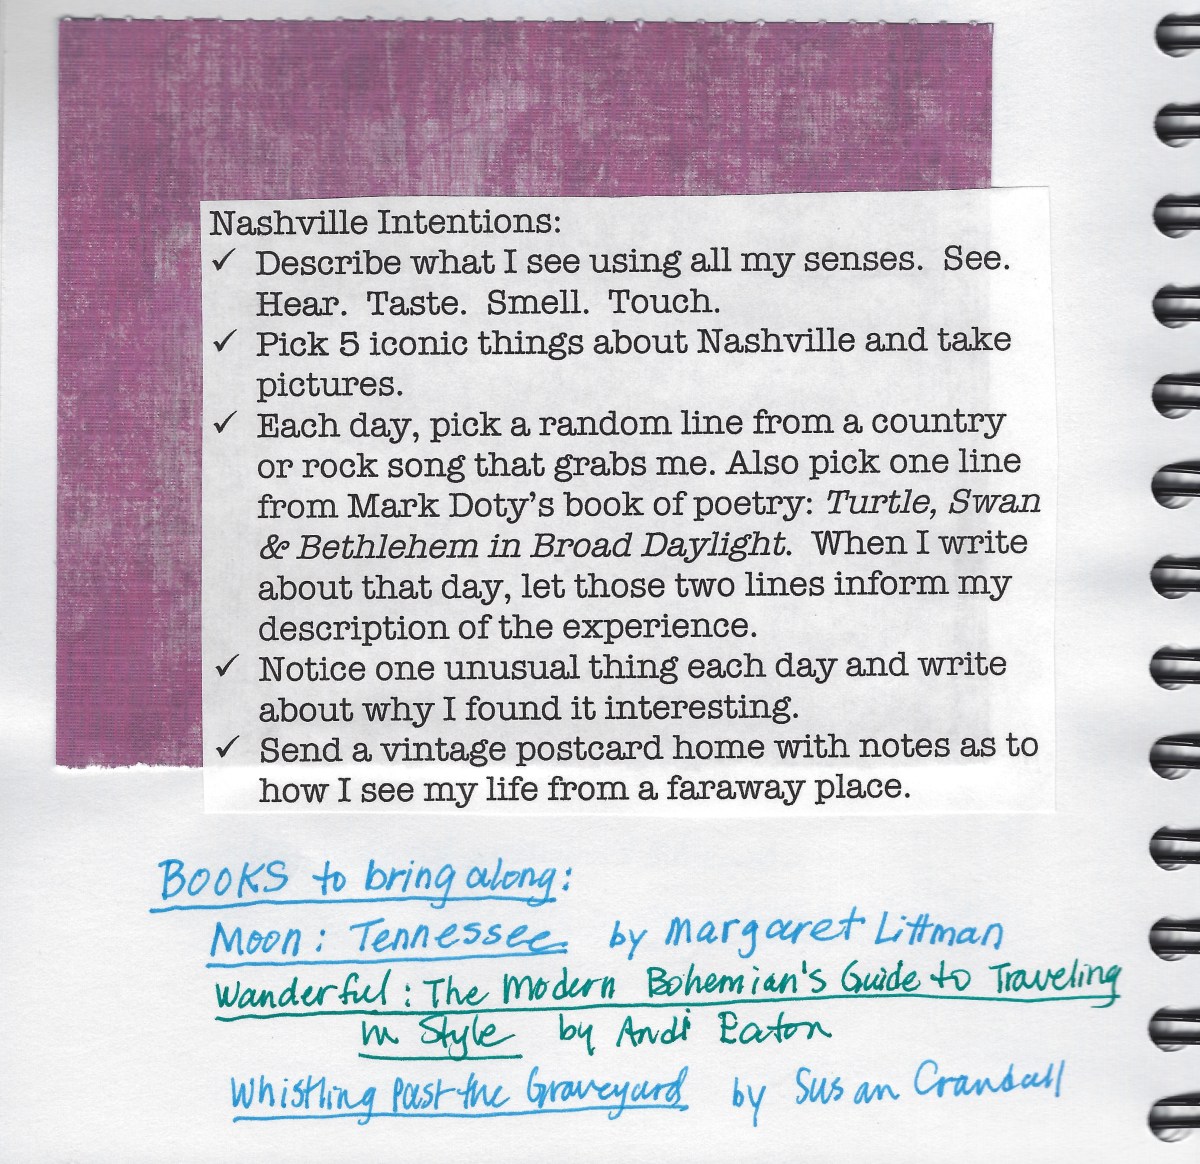 Nashville Intentions:
✓ Describe what I see using all my senses. See.
Hear. Taste. Smell. Touch.
✓ Pick 5 iconic things about Nashville and take
pictures.
✓ Each day, pick a random line from a country
or rock song that grabs me. Also pick one line
from Mark Doty's book of poetry: Turtle, Swan
& Bethlehem in Broad Daylight. When I write
about that day, let those two lines inform my
description of the experience.
✓ Notice one unusual thing each day and write
about why I found it interesting.
✓ Send a vintage postcard home with notes as to
how I see my life from a faraway place.
BOOKS to bring along:
Moon: Tennessee by Margaret Littman
Wanderful: The Modern Bohemian's Guide to Traveling
in Style by Andi Eaton
Whistling Past the Graveyard by Susan Crandall